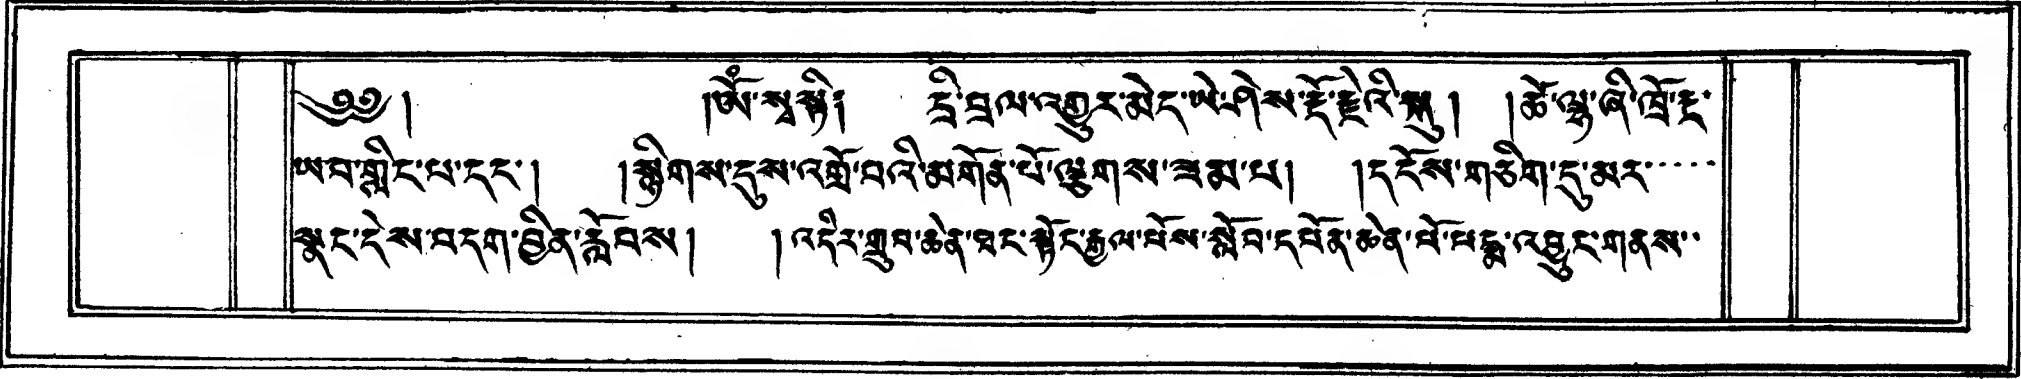 ༄༅། །ཨོཾ་སྭ་སྟི། དྲི་བྲལ་འགྱུར་མེད་ཡེ་ཤེས་རྡོ་རྗེའི་སྐུ། །ཚེ་ལྷ་ཞི་ཁྲོ་ཧ་
ཡབ་གླིང་པ་དང་། །སྙིགས་དུས་འགྲོ་བའི་མགོན་པོ་ལྕགས་ཟམ་པ། །དངོས་གཅིག་དུ་མར་.....
སྣང་དེས་བདག་བྱིན་རློབས། །འདིར་གྲུབ་ཆེན་ཐང་སྟོང་རྒྱལ་པོས་སློབ་དཔོན་ཆེན་པོ་པདྨ་འབྱུང་གནས་་